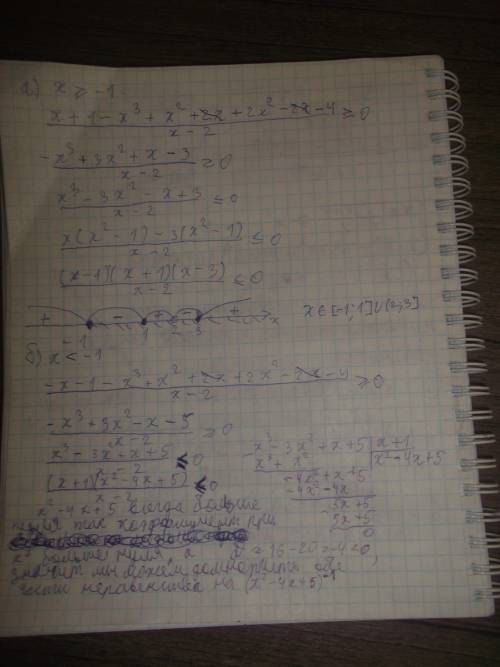 а) x ≥ -1
(x + 1 - x³ + x² + 2x + 2x² - 2x - 4)/(x - 2) ≥ 0
(-x³ + 3x² + x - 3)/(x - 2) ≥ 0
(x³ - 3x² - x + 3)/(x - 2) ≤ 0
(x(x² - 1) - 3(x² - 1))/(x - 2) ≤ 0
((x - 1)(x + 1)(x - 3))/(x - 2) ≤ 0
+ - + - + x
-1 1 2 3
x ∈ [-1; 1] ∪ (2; 3]
б) x < -1
(-x - 1 - x³ + x² + 2x + 2x² - 2x - 4)/(x - 2) ≥ 0
(-x³ + 3x² - x - 5)/(x - 2) ≥ 0
(x³ - 3x² + x + 5)/(x - 2) ≤ 0
((x + 1)(x² - 4x + 5))/(x - 2) ≤ 0
x³ - 3x² + x + 5 | x + 1
x³ + x² | x² - 4x + 5
-4x² + x + 5
-4x² - 4x
5x + 5
5x + 5
0
x² - 4x + 5 всегда больше
нуля так коэффициент при
x² больше нуля, а D = 16 - 20 = -4 < 0,
значит мы можем домножить обе
части неравенства на (x² - 4x + 5)⁻¹